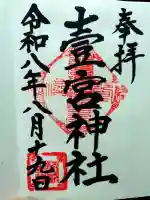 奉拝
壹宮神社
令和八年八月十九日